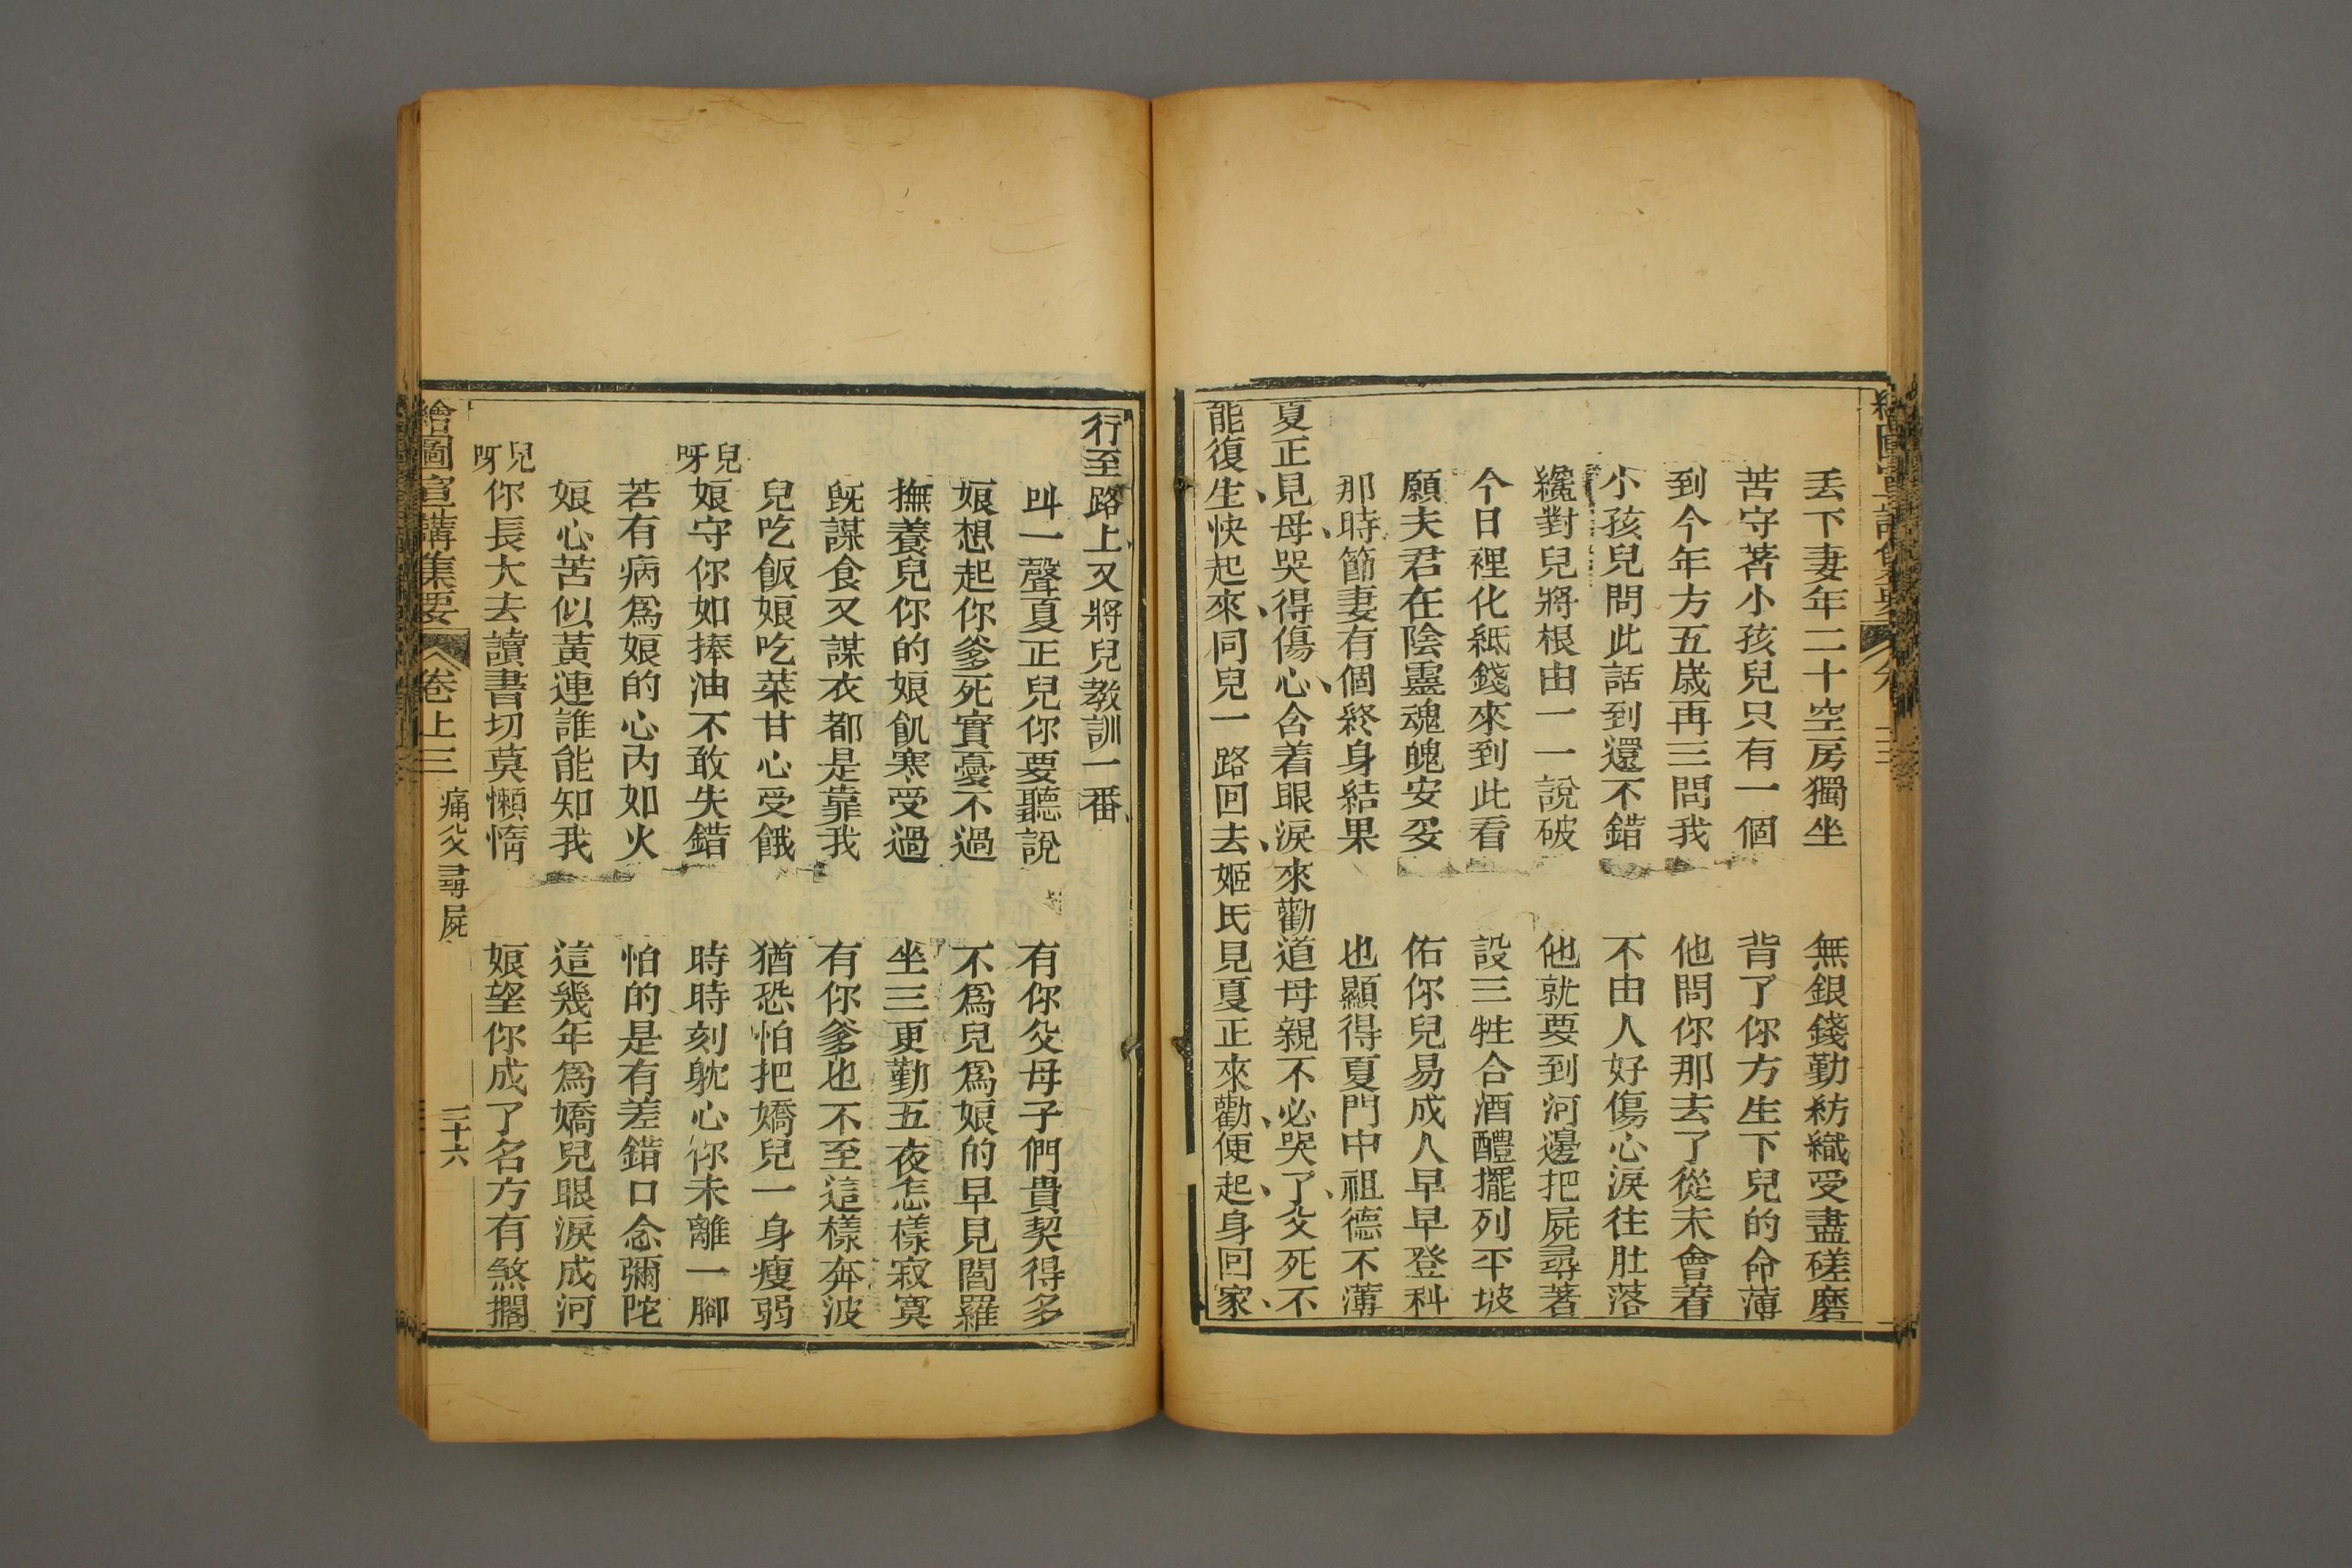 丢下妻年二十空房獨坐　無銀錢勤紡織受盡磋磨
苦守著小孩兒只有一個　背了你方生下兒的命薄
到今年方五歲再三問我　他問你那去了從未會着
小孩兒問此話到還不錯　不由人好傷心淚往肚落
纔對兒將根由一一說破　他就要到河邊把屍尋著
今日裡化紙錢來到此看　設三牲合酒醴擺列平坡
願夫君在陰靈魂魄安妥　佑你兒易成人早早登科
那時節妻有個終身結果　也顯得夏門中祖德不薄
夏正見母哭得傷心含着眼淚來勸道母親不必哭了父死不
能復生快起來同兒一路回去姬氏見夏正來勸便起身回家
行至路上又將兒教訓一番
叫一聲夏正兒你要聽說　有你父母子們貴契得多
娘想起你爹死實憂不過　不爲兒爲娘的早見閻羅
撫養兒你的娘飢寒受過　坐三更勤五夜怎樣寂寞
旣謀食又謀衣都是靠我　有你爹也不至這樣奔波
兒吃飯娘吃菜甘心受餓　猶恐怕把嬌兒一身瘦弱
兒呀娘守你如捧油不敢失錯　時時刻躭心你未離一腳
若有病爲娘的心內如火　怕的是有差錯口念彌陀
娘心苦似黃連誰能知我　這幾年爲嬌兒眼淚成河
兒呀你長大去讀書切莫懶惰　娘望你成了名方有煞擱
繪圖宣講集要　卷上三　痛父尋屍　三十六